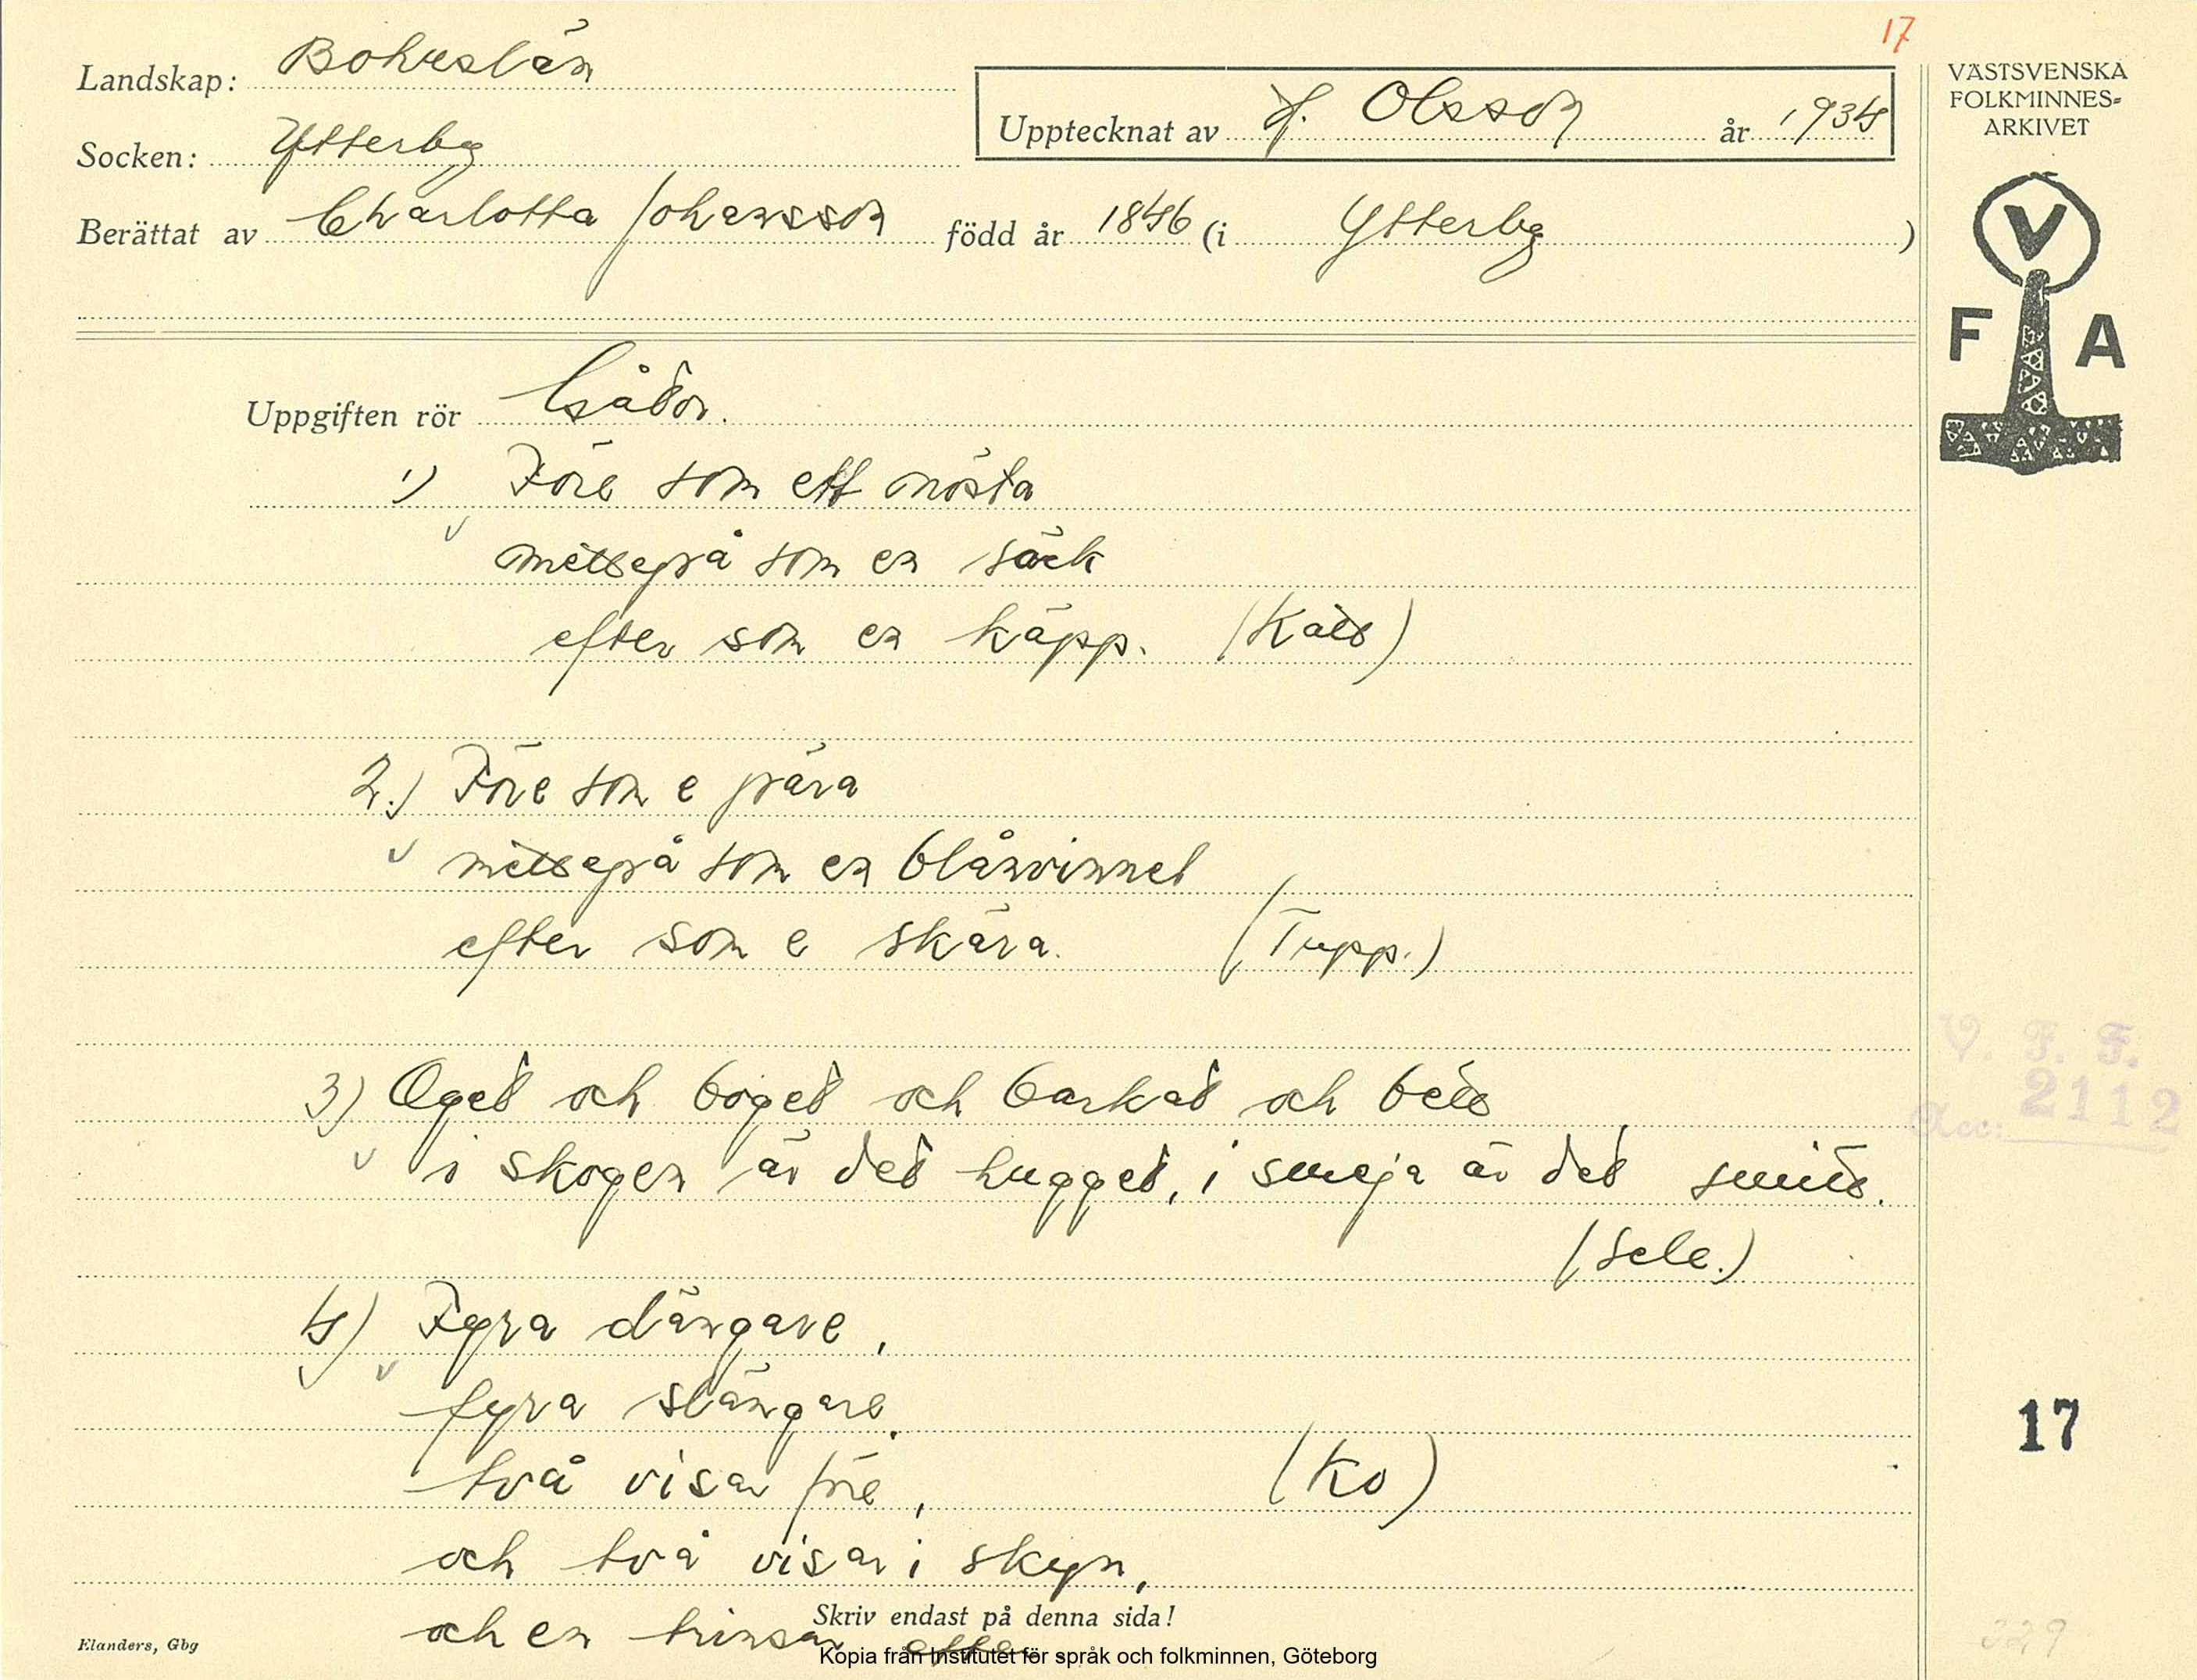 17
Landskap: Bohuslän
Upptecknat av J. Olsson år 1934
Socken: Ytterby
Berättat av Charlotta Johansson född år 1846 (i Ytterby )
VÄSTSVENSKA
FOLKMINNES-
ARKIVET
V
F A
Uppgiften rör Gåtor.
1) Före som ett nösta
mittepå som en säck
efter som en käpp. (Katt)
2.) Före som e pära
mittepå som en blånvinnel
efter som e skära. (Tupp.)
3) Öget och böget och barkat och bett
i skogen är det hugget, i smeja är det smitt.
(Sele.)
4) Fyra dängare,
fyra slängare,
två visar före, (Ko)
och två visar i skyn,
och en trinsar efter
V. F. F.
Acc: 2112
17
329
Skriv endast på denna sida!
Elanders, Gbg
Kopia från Institutet för språk och folkminnen, Göteborg